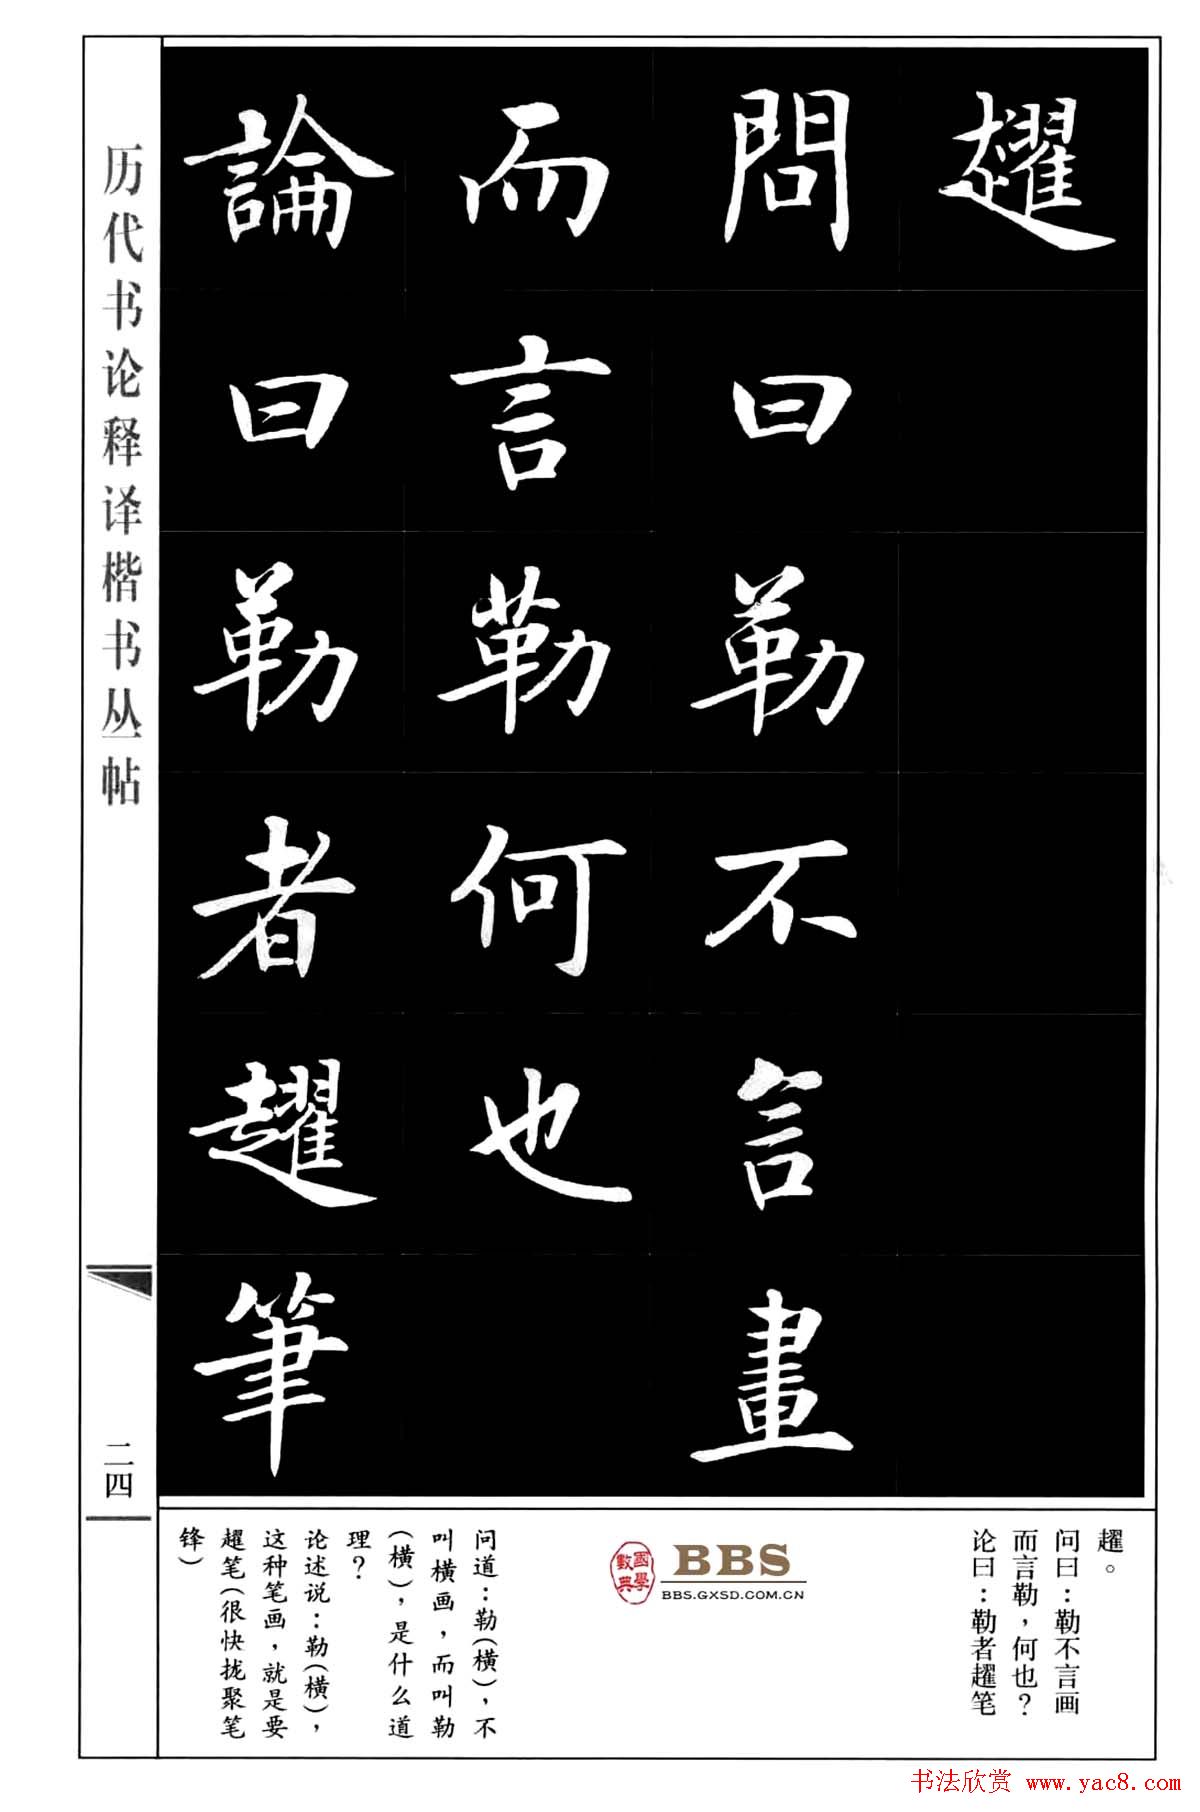 趯
問曰勒不言畫
而言勒何也
論曰勒者趯筆
历代书论释译楷书丛帖
二四
趯。
问曰：勒不言画
而言勒，何也？
论曰：勒者趯笔
國學數典
BBS
BBS.GXSD.COM.CN
问道：勒（横），不
叫横画，而叫勒
（横），是什么道
理？
论述说：勒（横），
这种笔画，就是要
趯笔（很快拢聚笔
锋）
书法欣赏 www.yac8.com